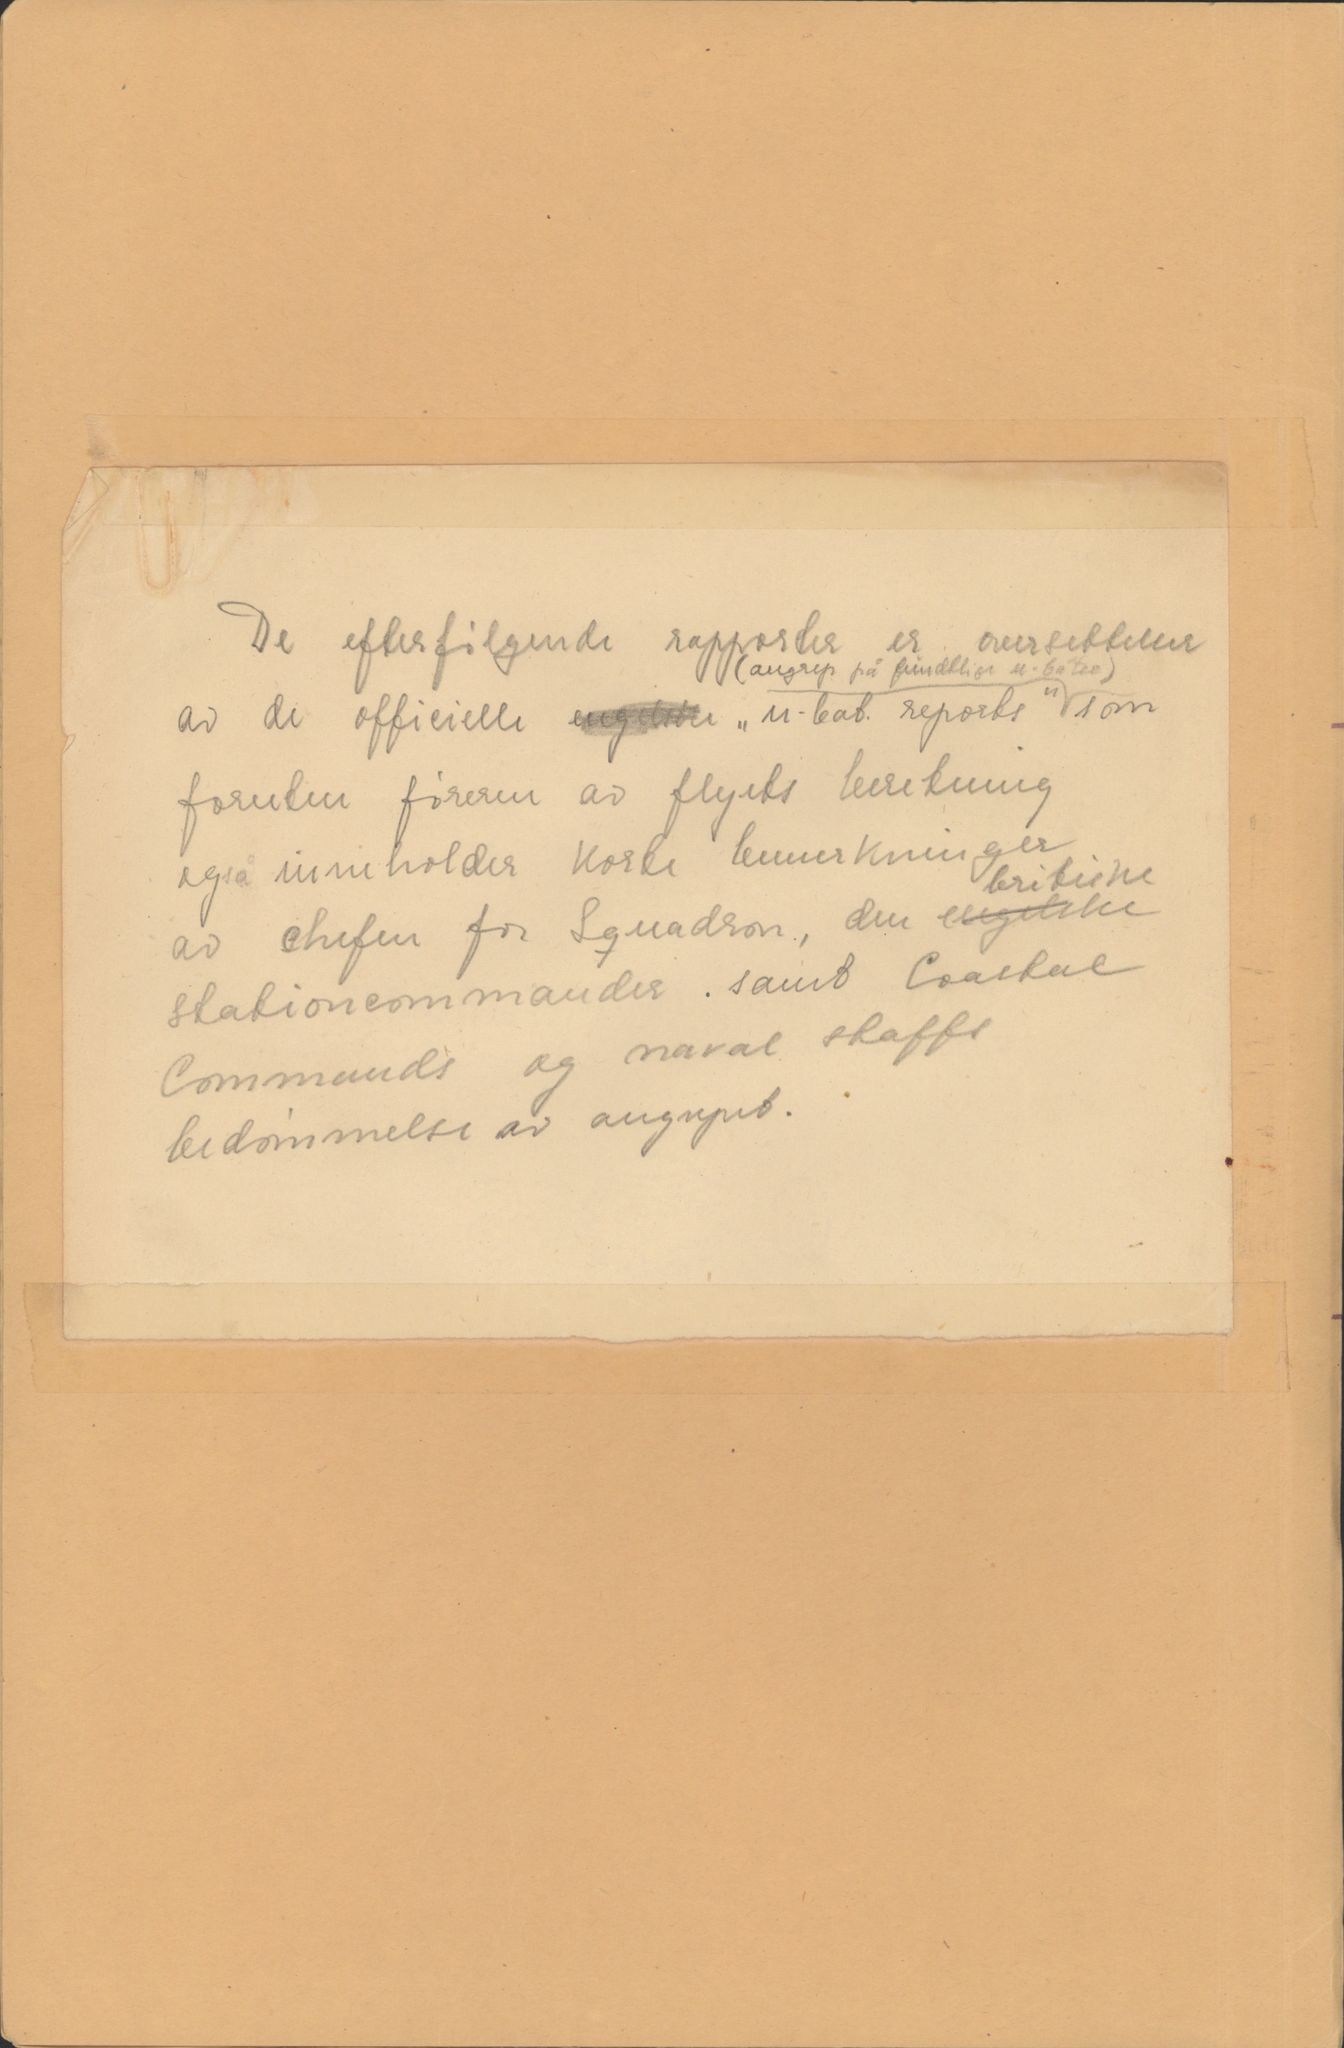 De efterfølgende rapporter er oversettelser
(angrep på fiendtlige u-båter)
av de officielle engelske „u-bat. reports" som
foruten føreren av flyets beretning
også inneholder korte bemerkninger
britiske
av chefen for Squadron, den engelske
stationcommander. samt Coastal
Commands og naval staffs
bedømmelse av angrepet.